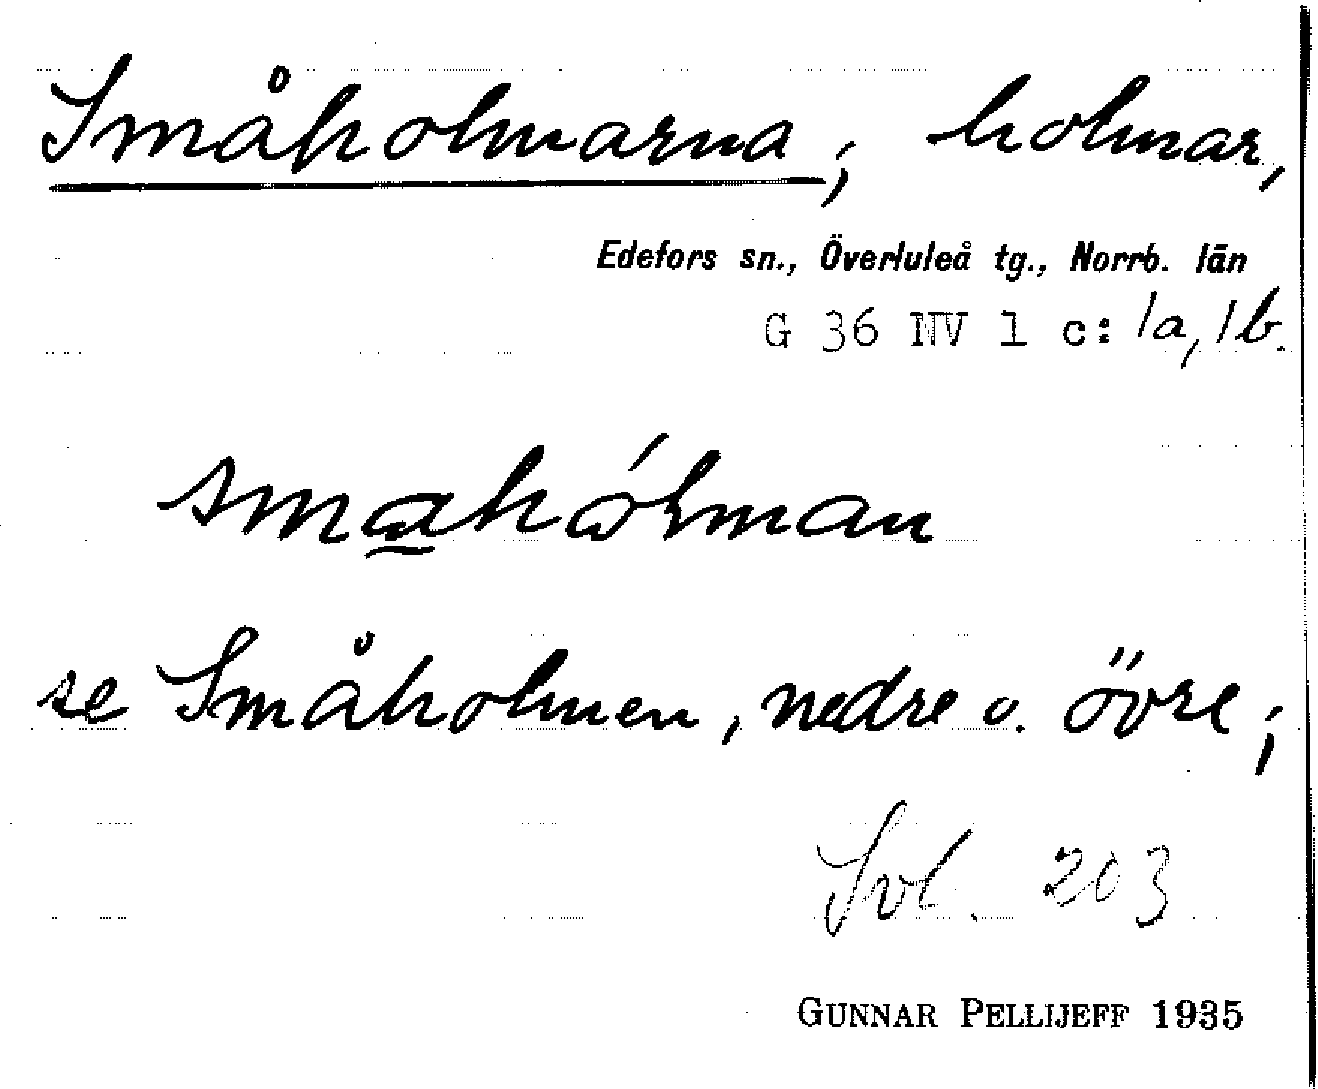 Småholmarna, holmar,
Edefors sn., Överluleå tg., Norrb. län
G 36 NV 1 c: 1a, 1b.
se Småholmen, nedre o. övre;
203
GUNNAR PELLIJEFF 1935